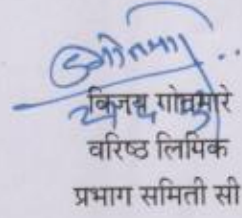 विजय गोतमारे
वरिष्ठ लिपिक
प्रभाग समिती सी